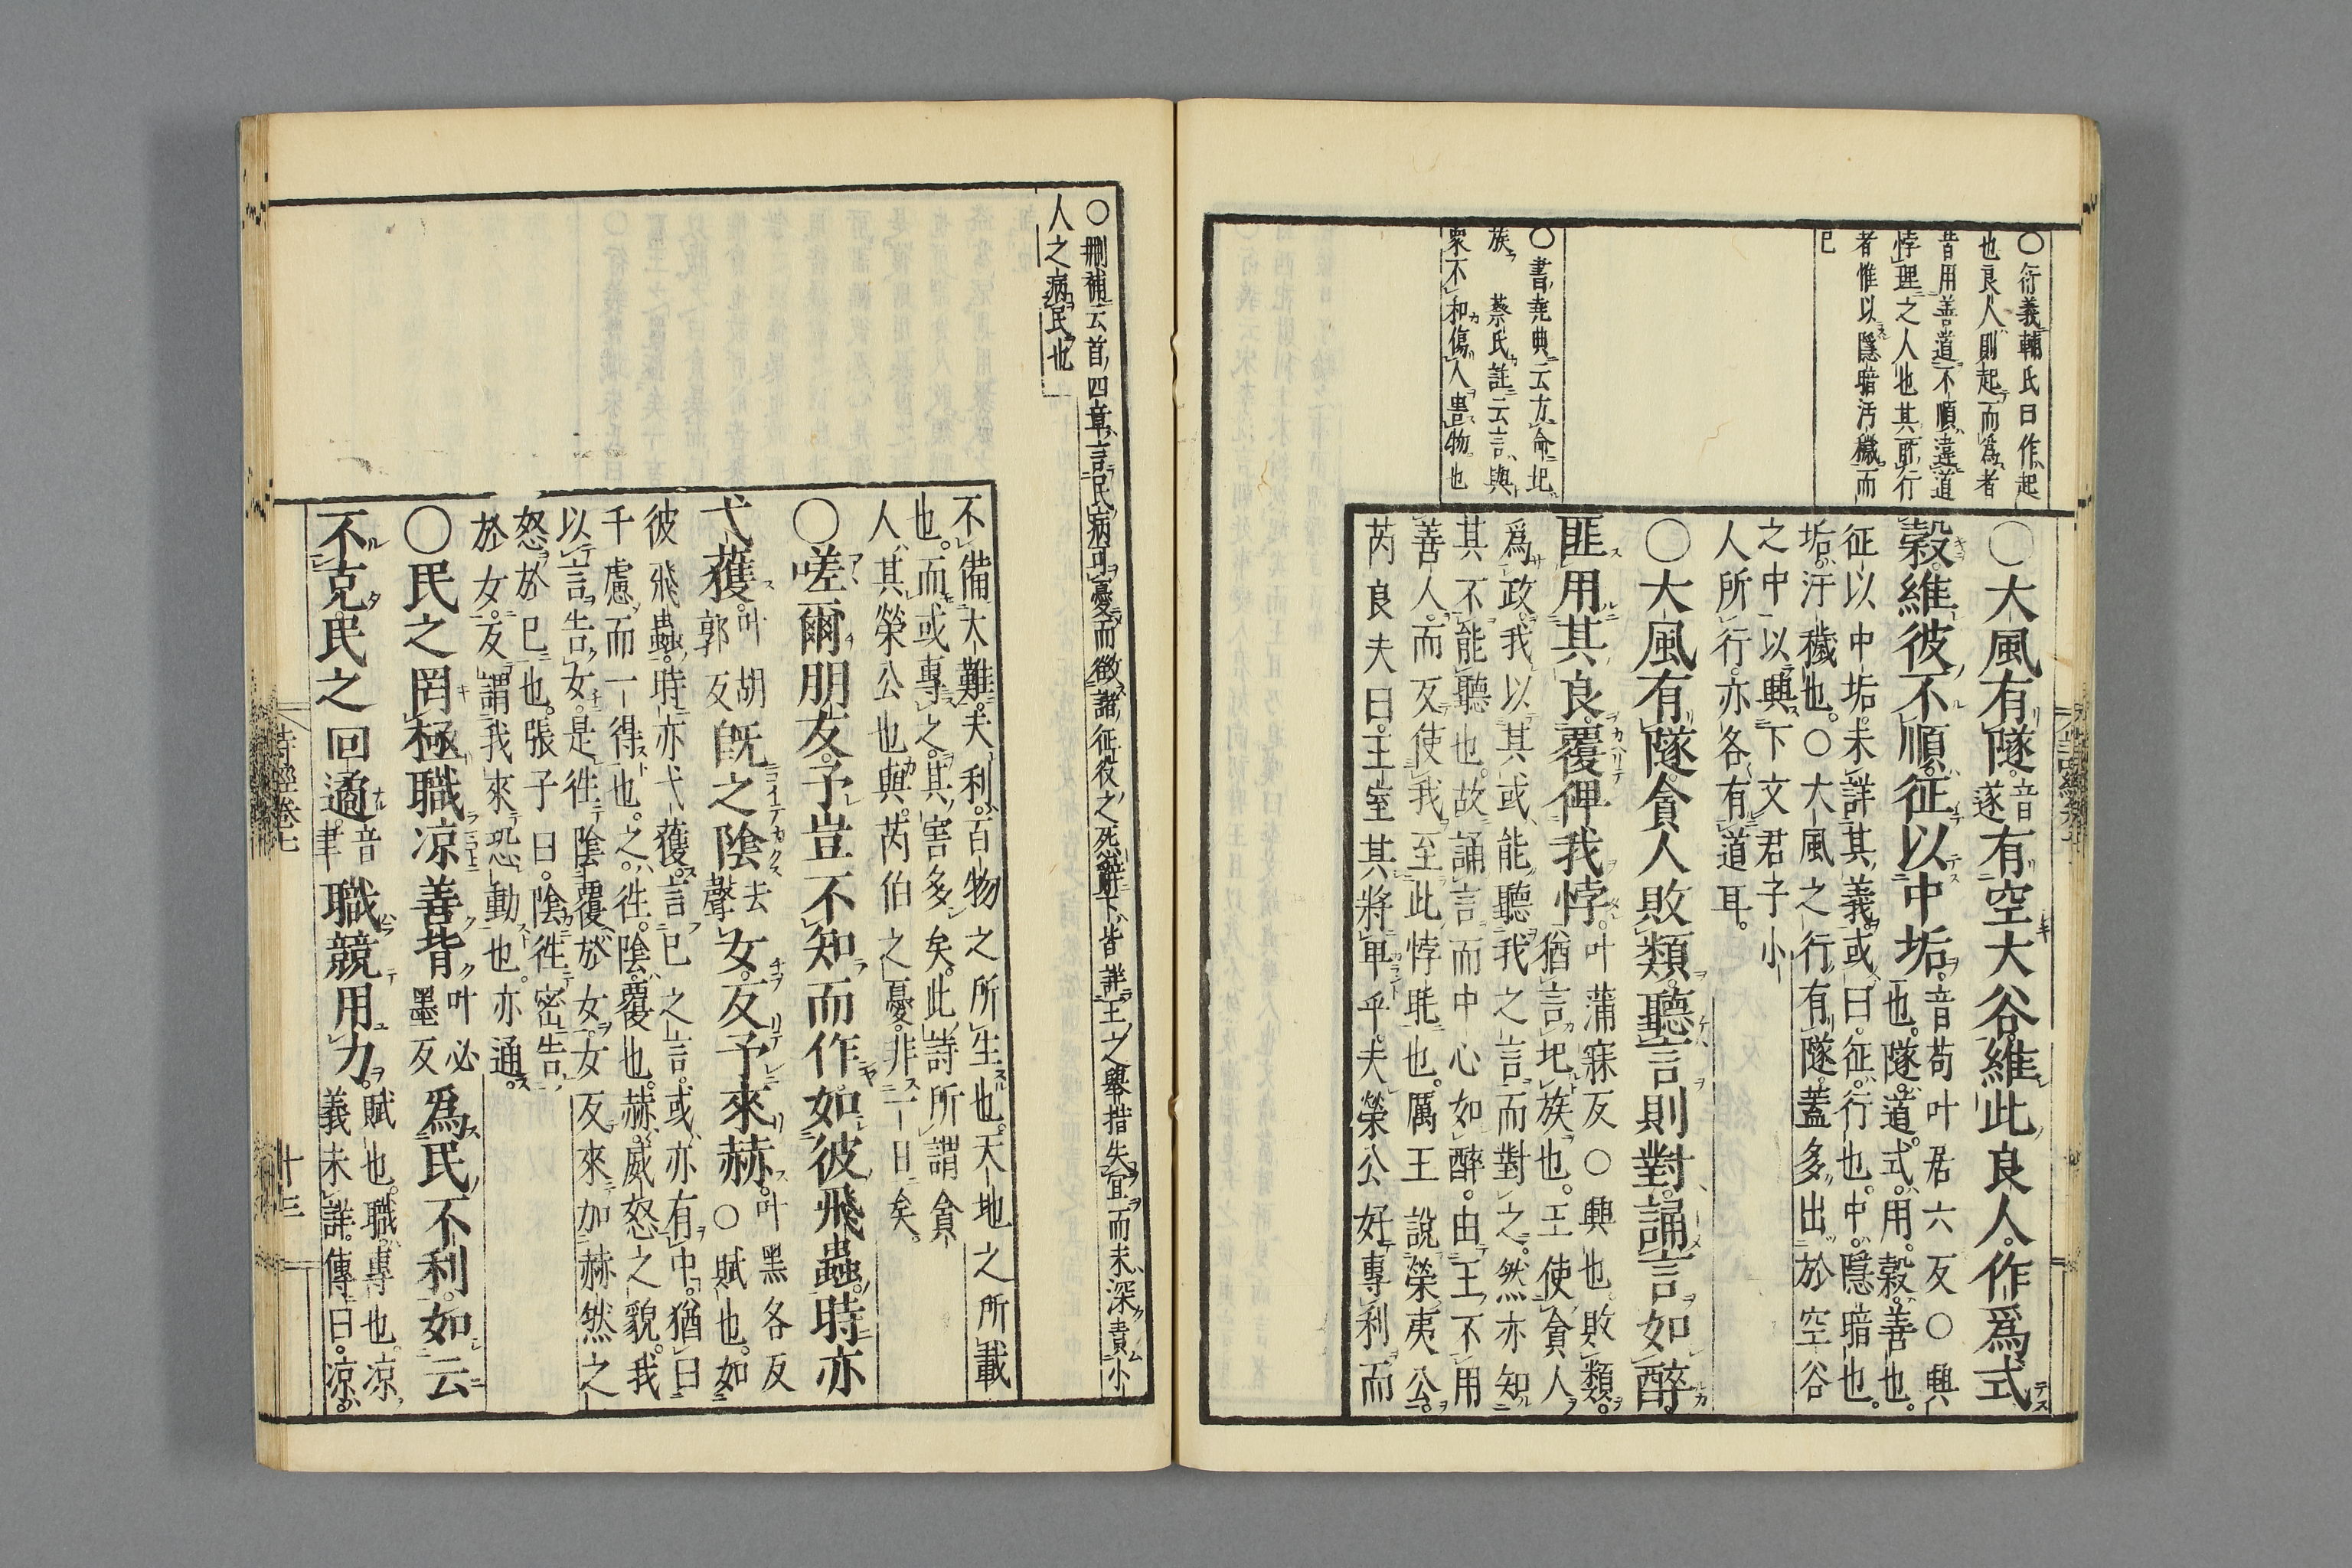 ○衍義輔氏曰作起
也良人則起而為者
昔用善道不順違道
悖理之人也其所行
者惟以隱暗汚穢而
已
○書堯典云方命圮
族 蔡氏註云言與
衆不和傷人害物也
○大風有隧音遂有空大谷維此良人作爲式
穀維彼不順征以中垢音苟叶居六反○興
也隧道式用穀善也
征以中垢未詳其義或曰征行也中隱暗也
垢汙穢也○大風之行有隧蓋多出於空谷
之中以興下文君子小
人所行亦各有道耳
○大風有隧貪人敗類聽言則對誦言如醉
匪用其良覆俾我悖叶蒲寐反○興也敗類
猶言圮族也王使貪人
爲政我以其或能聽我之言而對之然亦知
其不能聽也故誦言而中心如醉由王不用
善人而反使我至此悖眊也厲王說榮夷公
芮良夫曰王室其將卑乎夫榮公好專利而
○刪補云首四章言民病可憂而欲諸征役之死辭下皆詳王之擧措失宜而未深責小
人之病民也
不備大難夫利百物之所生也天地之所載
也而或專之其害多矣此詩所謂貪
人其榮公也與芮伯之憂非一日矣
○嗟爾朋友予豈不知而作如彼飛蟲時亦
弋獲叶胡郭反既之陰去聲女反予來赫叶黑各反
○賦也如
彼飛蟲時亦弋獲言已之言或亦有中猶曰
千慮而一得也之徃陰覆也赫威怒之貌我
以言告女是徃陰覆於女女反來加赫然之
怒於已也張子曰陰徃密告
於女反謂我來恐動也亦通
○民之罔極職凉善背叶必墨反爲民不利如云
不克民之回遹音聿職競用力賦也職專也凉
義未詳傳曰凉
詩經卷七
十三